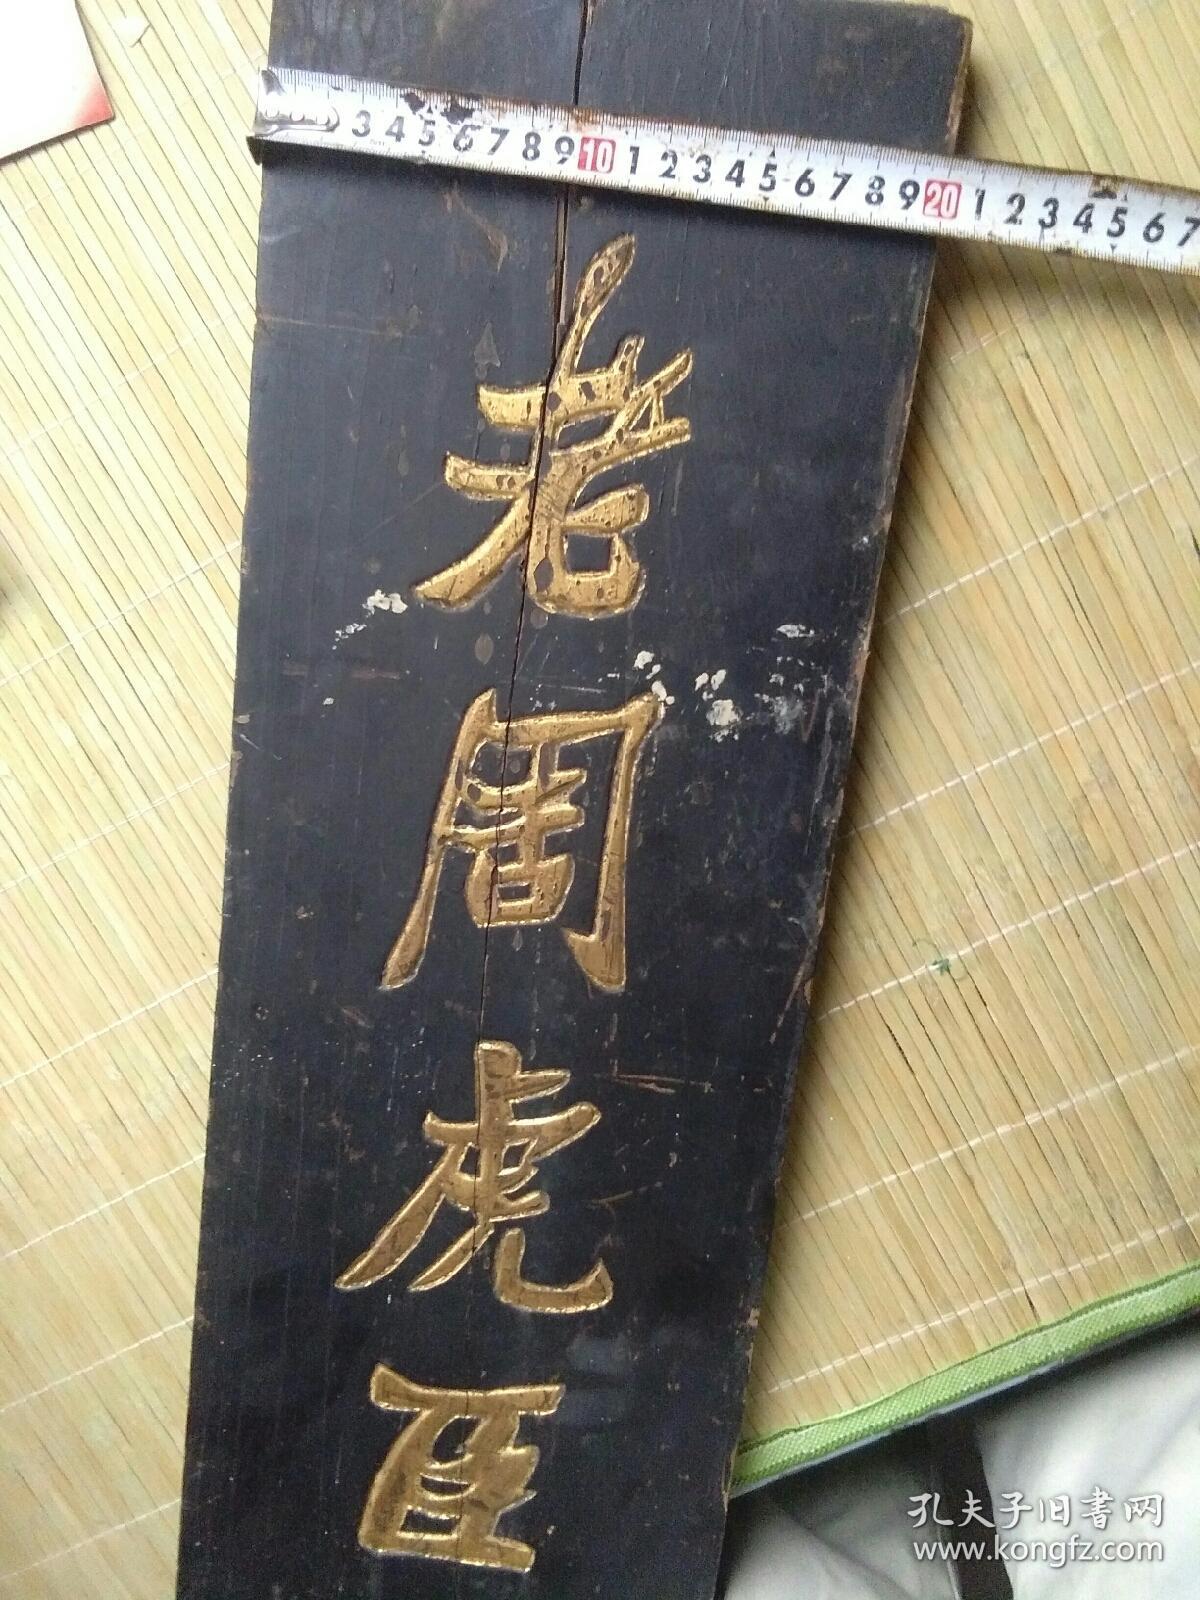 3 4 5 6 7 8 9 10 1 2 3 4 5 6 7 8 9 20 1 2 3 4 5 6 7
老周虎臣
孔夫子旧书网
www.kongfz.com